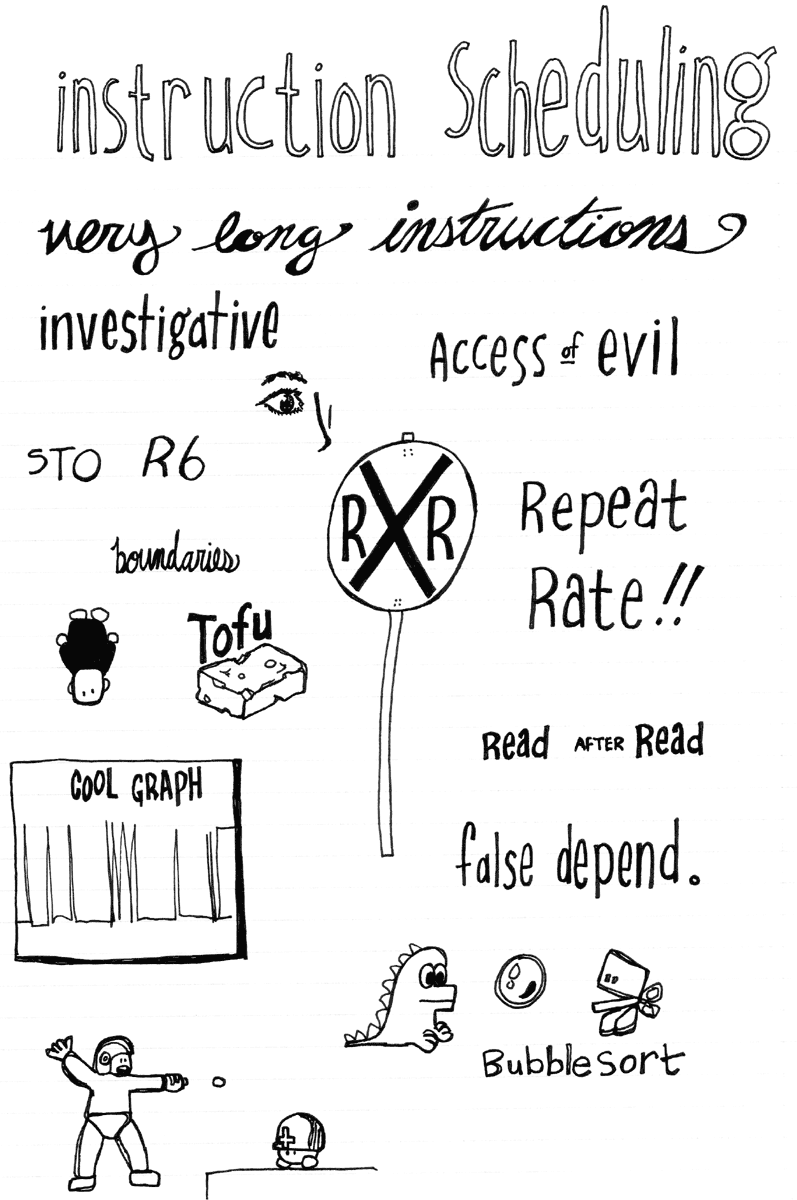 instruction Scheduling
very long instructions
investigative
Access of evil
STO R6
RXR
Repeat
Rate!!
boundaries
Tofu
Read AFTER Read
COOL GRAPH
false depend.
BubbleSort